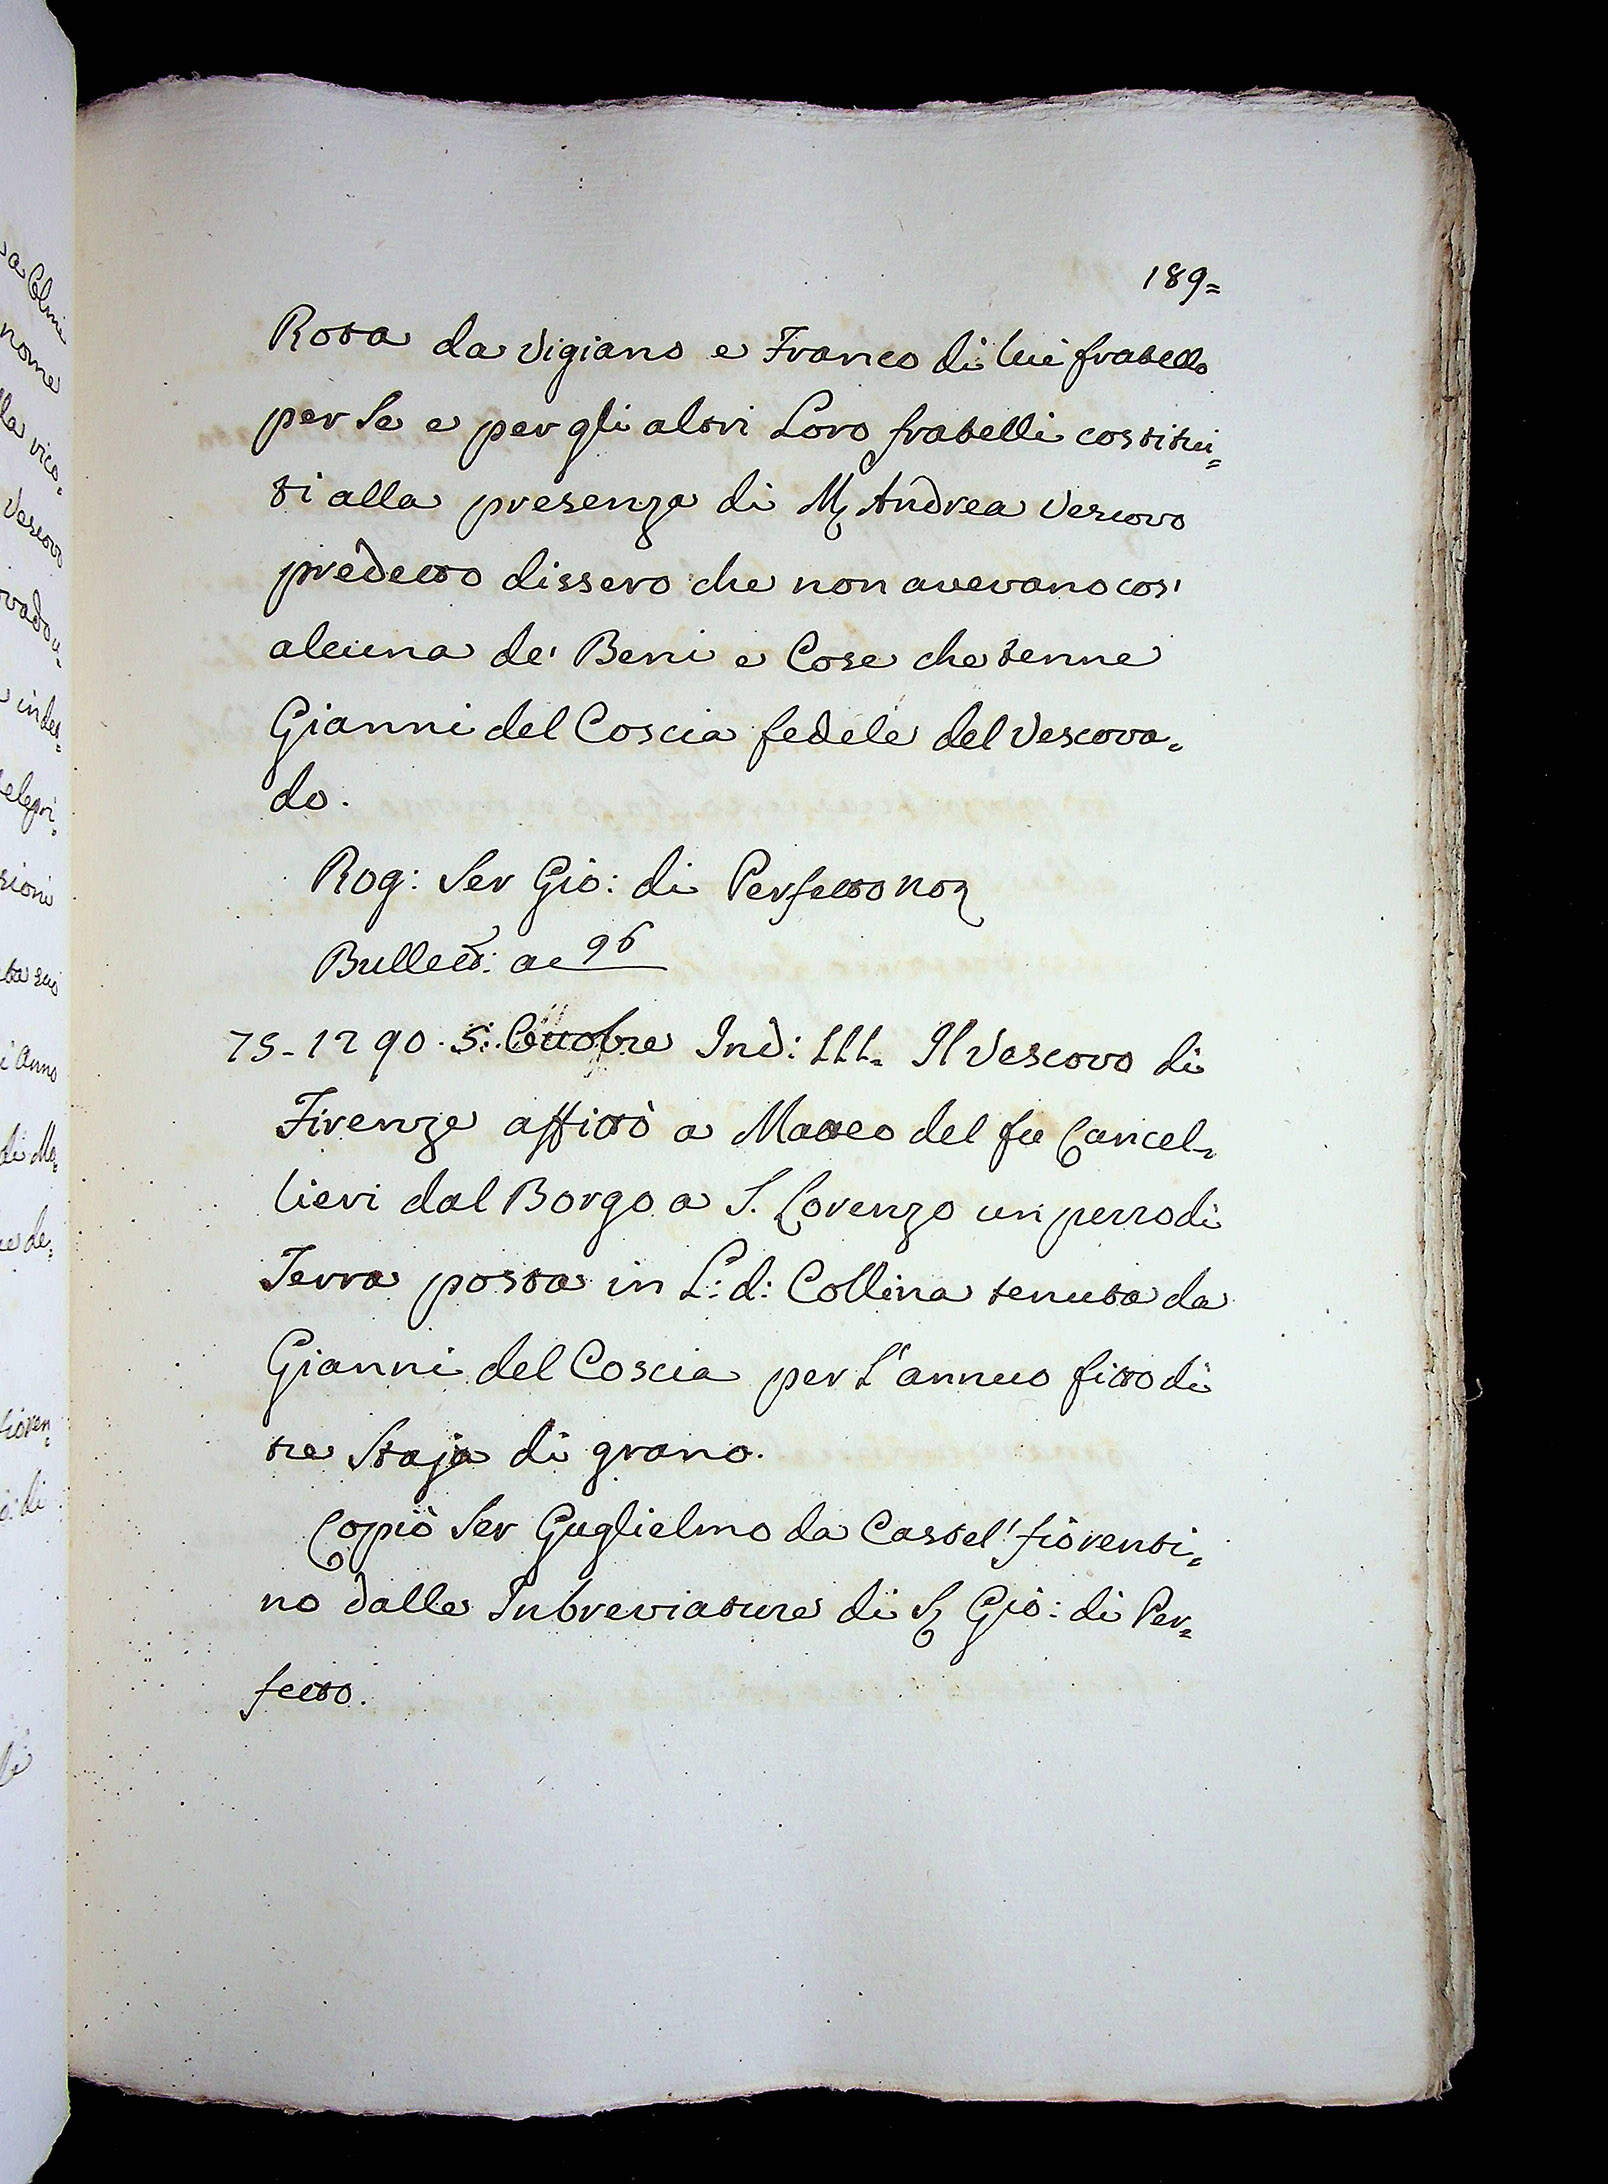 189=
Rota da Vigiano e Franco di lui fratello
per Se e per gli altri Loro fratelli costitui=
ti alla presenza di M. Andrea Vescovo
predetto dissero che non avevano cos'
alcuna de' Beni e Cose che tenne
Gianni del Coscia fedele del Vescova=
do.
Rog: Ser Gio: di Perfetto not
Bullett: ac 96
75-1290. 5: Ottobre Ind: III. Il Vescovo di
Firenze affittò a Matteo del fu Cancel=
lieri dal Borgo a S. Lorenzo un pezzo di
Terra posta in L: d: Collina tenuta da
Gianni del Coscia per L'annuo fitto di
tre Staja di grano.
Copiò Ser Guglielmo da Castel' fiorenti=
no dalle Inbreviature di S. Gio: di Per=
fetto.